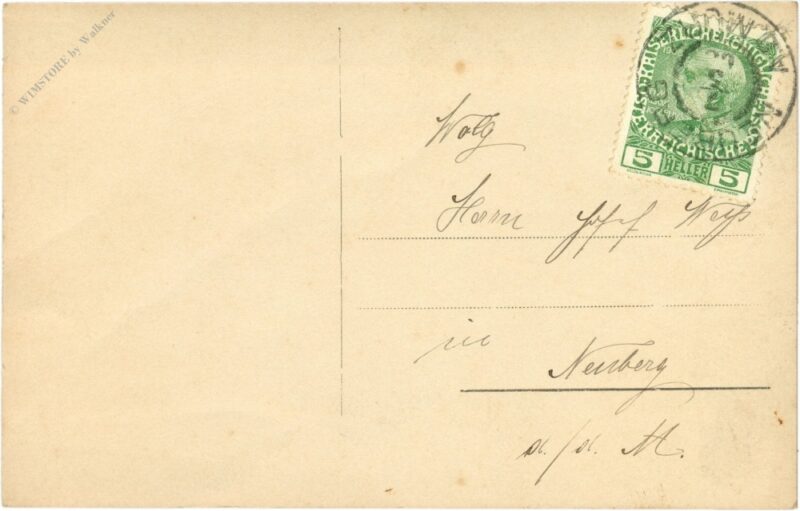 © WIMSTORE by Walkner
KAISERLICHE KÖNIGLICHE
ÖSTERREICHISCHE POST
5 HELLER 5
Wolg
Herrn Weiß
in
Neuberg
a./d. M.